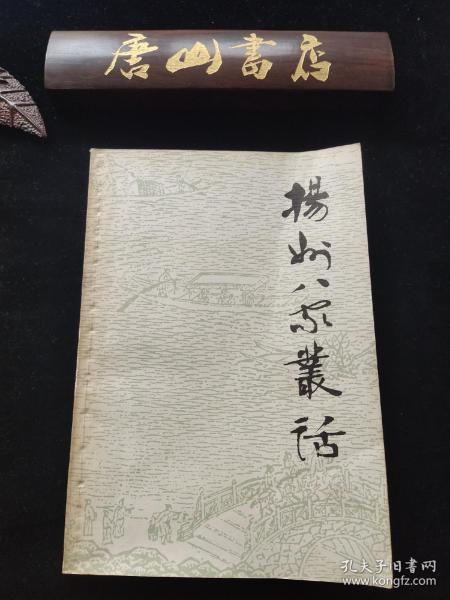 唐山書店
揚州八家叢話
孔夫子旧书网
www.kongfz.com